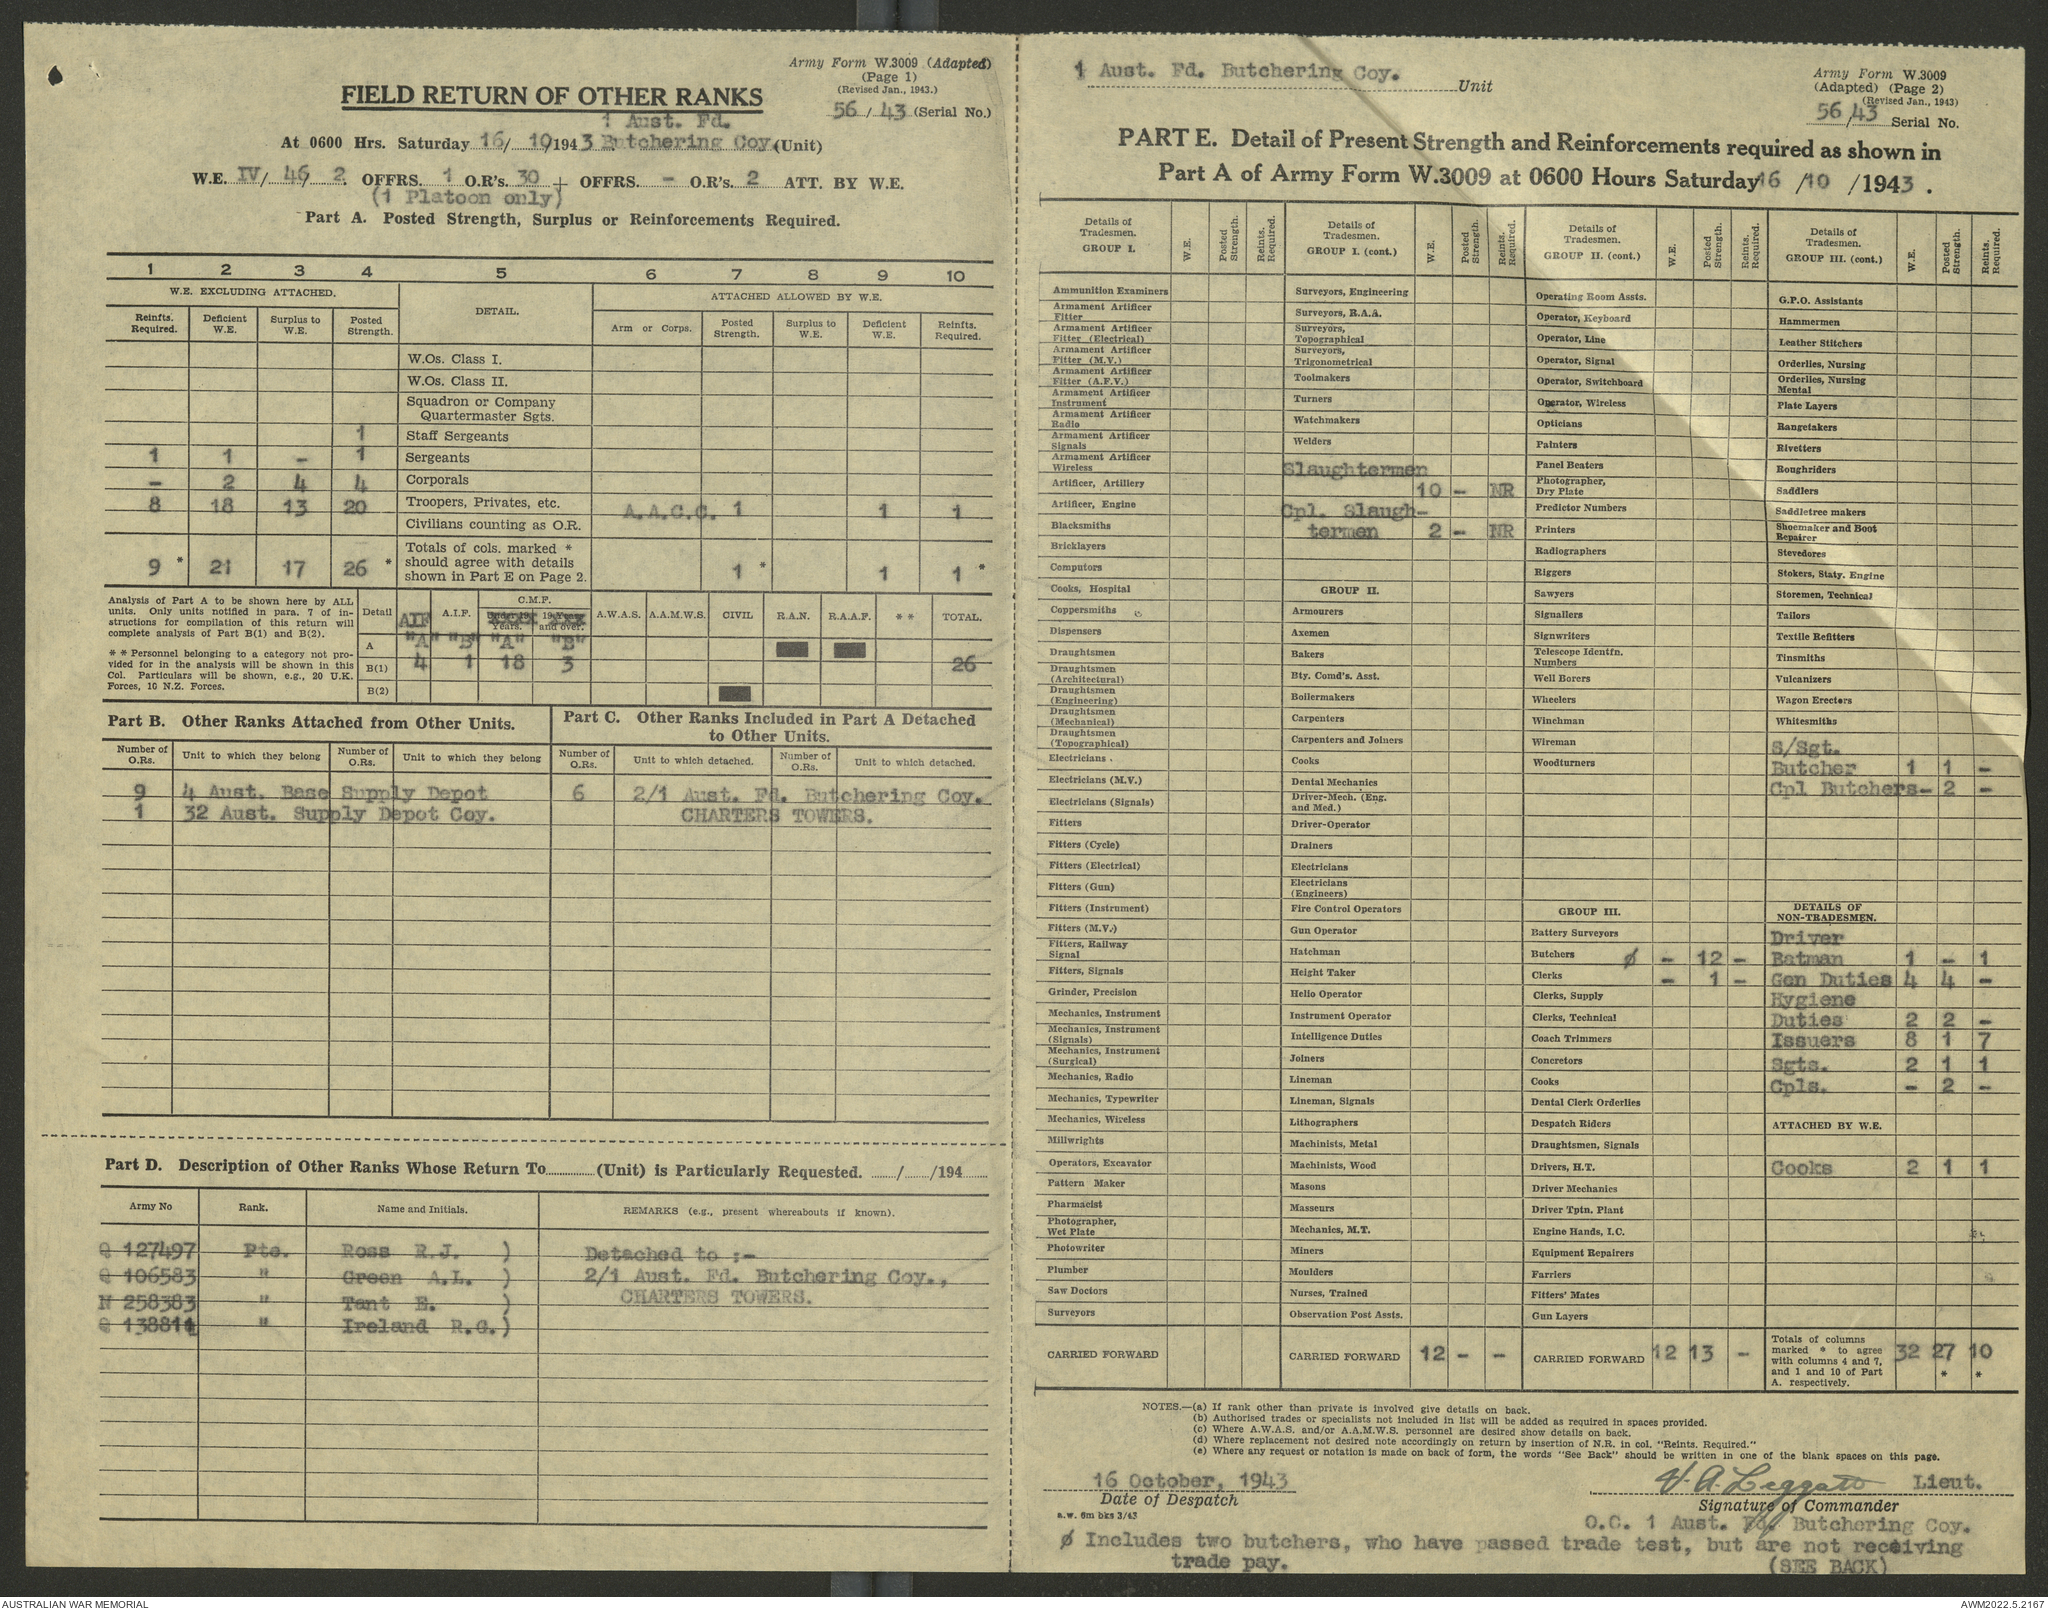 Army Form W.3009 (Adapted)
(Page 1)
(Revised Jan., 1943.)
FIELD RETURN OF OTHER RANKS
56 / 43 (Serial No.)
1 Aust. Fd.
At 0600 Hrs. Saturday 16/ 10/1943 Butchering Coy. (Unit)
W.E. IV/ 46/ 2. OFFRS. 1 O.R's. 30 + OFFRS. - O.R's. 2 ATT. BY W.E.
(1 Platoon only)
Part A. Posted Strength, Surplus or Reinforcements Required.
1 2 3 4 5 6 7 8 9 10
W.E. EXCLUDING ATTACHED. DETAIL. ATTACHED ALLOWED BY W.E.
Reinfts. Required. Deficient W.E. Surplus to W.E. Posted Strength. Arm or Corps. Posted Strength. Surplus to W.E. Deficient W.E. Reinfts. Required.
W.Os. Class I.
W.Os. Class II.
Squadron or Company
Quartermaster Sgts.
1 Staff Sergeants
1 1 - 1 Sergeants
- 2 4 4 Corporals
8 18 13 20 Troopers, Privates, etc. A.A.C.C. 1 1 1
Civilians counting as O.R.
Totals of cols. marked *
should agree with details
shown in Part E on Page 2.
9 * 21 17 26 * 1 * 1 1 *
Analysis of Part A to be shown here by ALL
units. Only units notified in para. 7 of in-
structions for compilation of this return will
complete analysis of Part B(1) and B(2).
* * Personnel belonging to a category not pro-
vided for in the analysis will be shown in this
Col. Particulars will be shown, e.g., 20 U.K.
Forces, 10 N.Z. Forces.
Detail AIF A.I.F. C.M.F. A.W.A.S. A.A.M.W.S. CIVIL R.A.N. R.A.A.F. * * TOTAL.
Years. and over.
A "A" "B" "A" "B"
B(1) 4 1 18 3 26
B(2)
Part B. Other Ranks Attached from Other Units.
Number of O.Rs. Unit to which they belong Number of O.Rs. Unit to which they belong
9 4 Aust. Base Supply Depot
1 32 Aust. Supply Depot Coy.
Part C. Other Ranks Included in Part A Detached
to Other Units.
Number of O.Rs. Unit to which detached. Number of O.Rs. Unit to which detached.
6 2/1 Aust. Fd. Butchering Coy.
CHARTERS TOWERS.
Part D. Description of Other Ranks Whose Return To (Unit) is Particularly Requested. / /194
Army No Rank. Name and Initials. REMARKS (e.g., present whereabouts if known).
Q 127497 Pte. Ross R.J. ) Detached to ;-
Q 106583 " Green A.L. ) 2/1 Aust. Fd. Butchering Coy.,
N 258383 " Tant E. ) CHARTERS TOWERS.
Q 138811 " Ireland R.G.)
1 Aust. Fd. Butchering Coy. Unit
Army Form W.3009
(Adapted) (Page 2)
(Revised Jan., 1943)
56/43 Serial No.
PART E. Detail of Present Strength and Reinforcements required as shown in
Part A of Army Form W.3009 at 0600 Hours Saturday 16 /10 /1943.
Details of Tradesmen. GROUP I. W.E. Posted Strength. Reints. Required.
Ammunition Examiners
Armament Artificer Fitter
Armament Artificer Fitter (Electrical)
Armament Artificer Fitter (M.V.)
Armament Artificer Fitter (A.F.V.)
Armament Artificer Instrument
Armament Artificer Radio
Armament Artificer Signals
Armament Artificer Wireless
Artificer, Artillery
Artificer, Engine
Blacksmiths
Bricklayers
Computors
Cooks, Hospital
Coppersmiths
Dispensers
Draughtsmen
Draughtsmen (Architectural)
Draughtsmen (Engineering)
Draughtsmen (Mechanical)
Draughtsmen (Topographical)
Electricians
Electricians (M.V.)
Electricians (Signals)
Fitters
Fitters (Cycle)
Fitters (Electrical)
Fitters (Gun)
Fitters (Instrument)
Fitters (M.V.)
Fitters, Railway Signal
Fitters, Signals
Grinder, Precision
Mechanics, Instrument
Mechanics, Instrument (Signals)
Mechanics, Instrument (Surgical)
Mechanics, Radio
Mechanics, Typewriter
Mechanics, Wireless
Millwrights
Operators, Excavator
Pattern Maker
Pharmacist
Photographer, Wet Plate
Photowriter
Plumber
Saw Doctors
Surveyors
CARRIED FORWARD
Details of Tradesmen. GROUP I. (cont.) W.E. Posted Strength. Reints. Required.
Surveyors, Engineering
Surveyors, R.A.A.
Surveyors, Topographical
Surveyors, Trigonometrical
Toolmakers
Turners
Watchmakers
Welders
Slaughtermen
10 - NR
Cpl. Slaugh-
termen 2 - NR
GROUP II.
Armourers
Axemen
Bakers
Bty. Comd's. Asst.
Boilermakers
Carpenters
Carpenters and Joiners
Cooks
Dental Mechanics
Driver-Mech. (Eng. and Med.)
Driver-Operator
Drainers
Electricians
Electricians (Engineers)
Fire Control Operators
Gun Operator
Hatchman
Height Taker
Helio Operator
Instrument Operator
Intelligence Duties
Joiners
Lineman
Lineman, Signals
Lithographers
Machinists, Metal
Machinists, Wood
Masons
Masseurs
Mechanics, M.T.
Miners
Moulders
Nurses, Trained
Observation Post Assts.
CARRIED FORWARD 12 - -
Details of Tradesmen. GROUP II. (cont.) W.E. Posted Strength. Reints. Required.
Operating Room Assts.
Operator, Keyboard
Operator, Line
Operator, Signal
Operator, Switchboard
Operator, Wireless
Opticians
Painters
Panel Beaters
Photographer, Dry Plate
Predictor Numbers
Printers
Radiographers
Riggers
Sawyers
Signallers
Signwriters
Telescope Identfn. Numbers
Well Borers
Wheelers
Winchman
Wireman
Woodturners
GROUP III.
Battery Surveyors
Butchers ø - 12 -
Clerks - 1 -
Clerks, Supply
Clerks, Technical
Coach Trimmers
Concretors
Cooks
Dental Clerk Orderlies
Despatch Riders
Draughtsmen, Signals
Drivers, H.T.
Driver Mechanics
Driver Tptn. Plant
Engine Hands, I.C.
Equipment Repairers
Farriers
Fitters' Mates
Gun Layers
CARRIED FORWARD 12 13 -
Details of Tradesmen. GROUP III. (cont.) W.E. Posted Strength. Reints. Required.
G.P.O. Assistants
Hammermen
Leather Stitchers
Orderlies, Nursing
Orderlies, Nursing Mental
Plate Layers
Rangetakers
Rivetters
Roughriders
Saddlers
Saddletree makers
Shoemaker and Boot Repairer
Stevedores
Stokers, Staty. Engine
Storemen, Technical
Tailors
Textile Refitters
Tinsmiths
Vulcanizers
Wagon Erectors
Whitesmiths
S/Sgt.
Butcher 1 1 -
Cpl Butchers - 2 -
DETAILS OF
NON-TRADESMEN.
Driver
Batman 1 - 1
Gen Duties 4 4 -
Hygiene
Duties 2 2 -
Issuers 8 1 7
Sgts. 2 1 1
Cpls. - 2 -
ATTACHED BY W.E.
Cooks 2 1 1
Totals of columns
marked * to agree
with columns 4 and 7,
and 1 and 10 of Part
A. respectively.
32 27 10
* *
NOTES.—(a) If rank other than private is involved give details on back.
(b) Authorised trades or specialists not included in list will be added as required in spaces provided.
(c) Where A.W.A.S. and/or A.A.M.W.S. personnel are desired show details on back.
(d) Where replacement not desired note accordingly on return by insertion of N.R. in col. "Reints. Required."
(e) Where any request or notation is made on back of form, the words "See Back" should be written in one of the blank spaces on this page.
16 October, 1943
Date of Despatch
V. A. Leggato Lieut.
Signature of Commander
a.w. 6m bks 3/43
O.C. 1 Aust. Fd. Butchering Coy.
ø Includes two butchers, who have passed trade test, but are not receiving
trade pay.
(SEE BACK)
AUSTRALIAN WAR MEMORIAL
AWM2022.5.2167